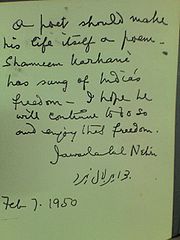 A poet should make
his life itself a poem.
Shameem Karhani
has sung of India's
freedom — I hope he
will continue to do so
and enjoy this freedom.
Jawaharlal Nehru
جواہر لال نہرو
Feb 7. 1950